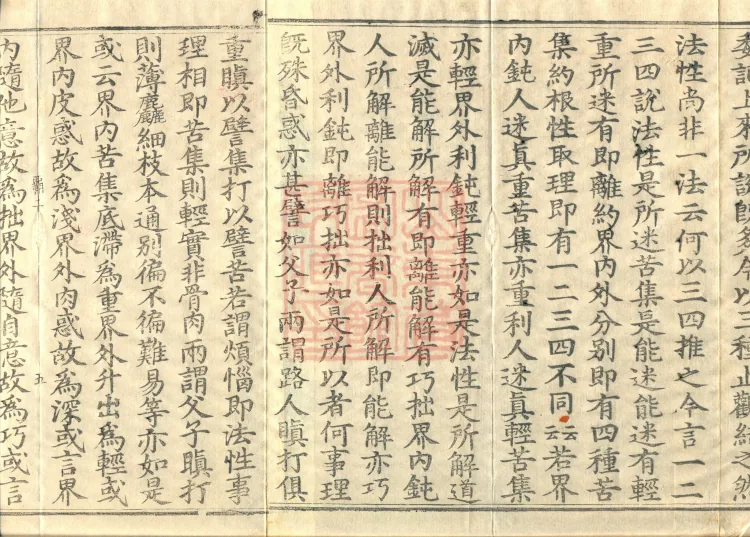 上來所說以三種止觀結之然
法性尚非一法云何以三四推之今言一二
三四說法性是所迷苦集是能迷能迷有輕
重所迷有即離約界內外分別即有四種苦
集約根性取理即有一二三四不同云云若界
內鈍人迷眞重苦集亦重利人迷眞輕苦集
亦輕界外利鈍輕重亦如是法性是所解道
滅是能解所解有即離能解有巧拙界內鈍
人所解離能解則拙利人所解即能解亦巧
界外利鈍即離巧拙亦如是所以者何事理
旣殊昏惑亦甚譬如父子兩謂路人瞋打俱
重瞋以譬集打以譬苦若謂煩惱即法性事
理相即苦集則輕實非骨肉兩謂父子瞋打
則薄麤細枝本通別徧不徧難易等亦如是
或云界內苦集底滯為重界外升出為輕或
界內皮惑故為淺界外肉惑故為深或言界
五
內隨他意故為拙界外隨自意故為巧或言